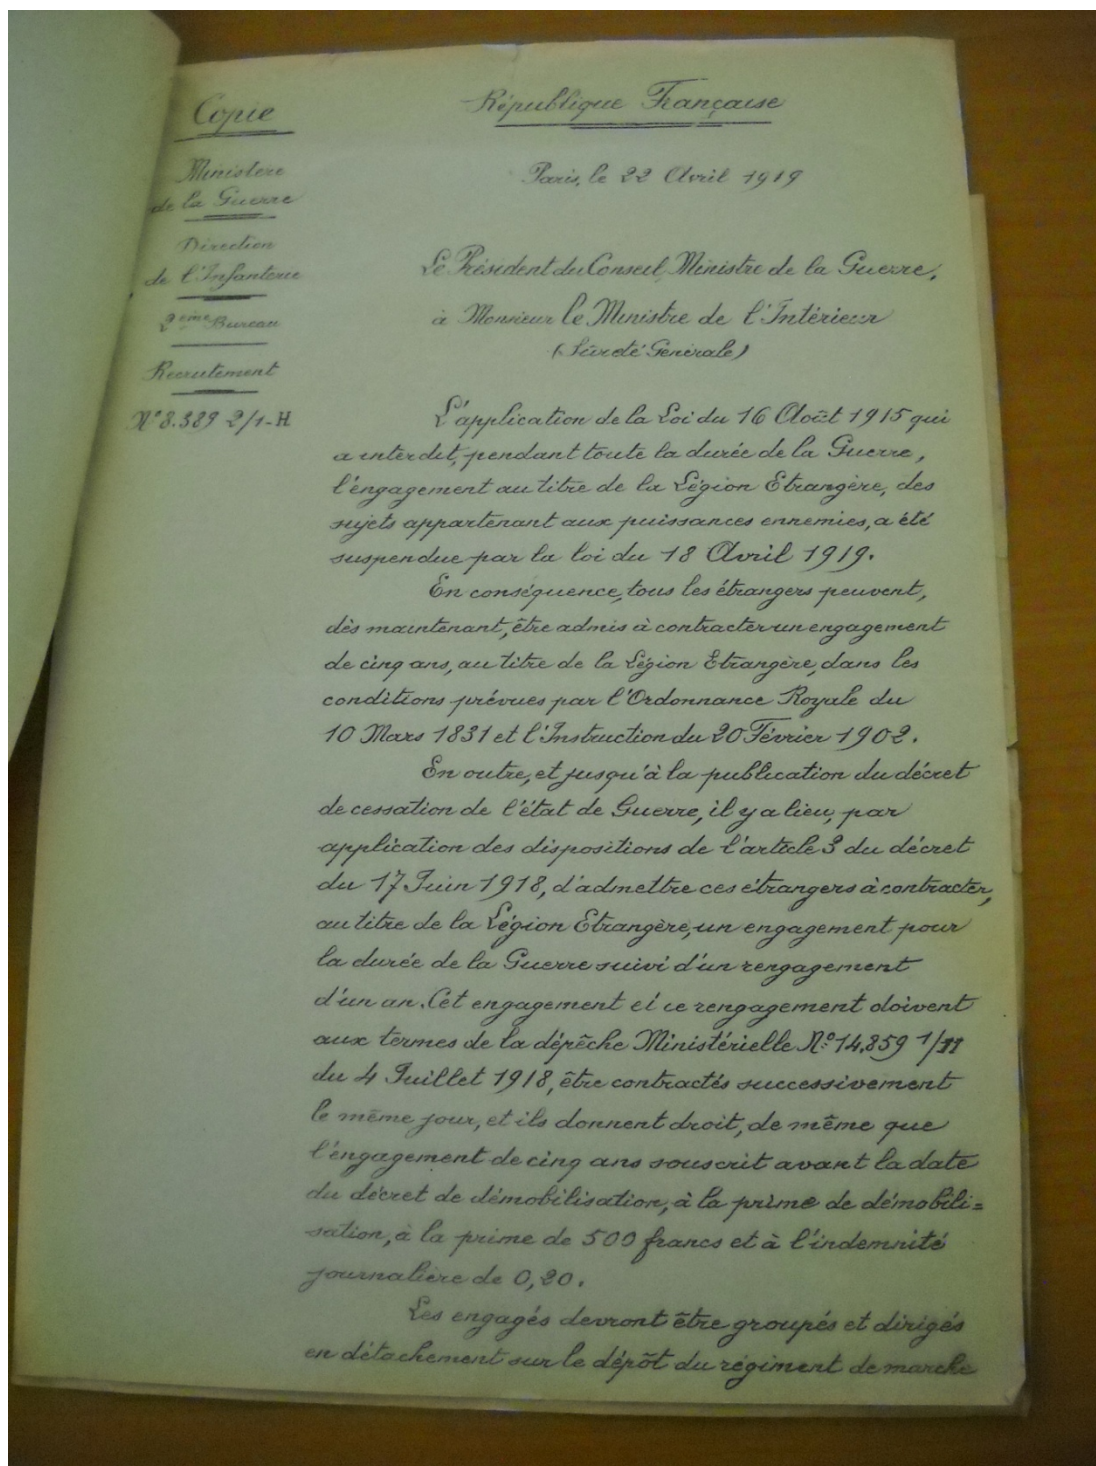 Copie
République Française
Ministère
de la Guerre
Paris, le 22 Avril 1919
Direction
de l'Infanterie
2ème Bureau
Recrutement
N° 8.389 2/1-H
Le Président du Conseil, Ministre de la Guerre,
à Monsieur le Ministre de l'Intérieur
(Sûreté Générale)
L'application de la Loi du 16 Août 1915 qui
a interdit, pendant toute la durée de la Guerre,
l'engagement au titre de la Légion Etrangère, des
sujets appartenant aux puissances ennemies, a été
suspendue par la loi du 18 Avril 1919.
En conséquence, tous les étrangers peuvent,
dès maintenant, être admis à contracter un engagement
de cinq ans, au titre de la Légion Etrangère, dans les
conditions prévues par l'Ordonnance Royale du
10 Mars 1831 et l'Instruction du 20 Février 1902.
En outre, et jusqu'à la publication du décret
de cessation de l'état de Guerre, il y a lieu, par
application des dispositions de l'article 3 du décret
du 17 Juin 1918, d'admettre ces étrangers à contracter,
au titre de la Légion Etrangère, un engagement pour
la durée de la Guerre suivi d'un rengagement
d'un an. Cet engagement et ce rengagement doivent
aux termes de la dépêche Ministérielle N° 14.859 1/11
du 4 Juillet 1918, être contractés successivement
le même jour, et ils donnent droit, de même que
l'engagement de cinq ans souscrit avant la date
du décret de démobilisation, à la prime de démobili=
sation, à la prime de 500 francs et à l'indemnité
journalière de 0,20.
Les engagés devront être groupés et dirigés
en détachement sur le dépôt du régiment de marche